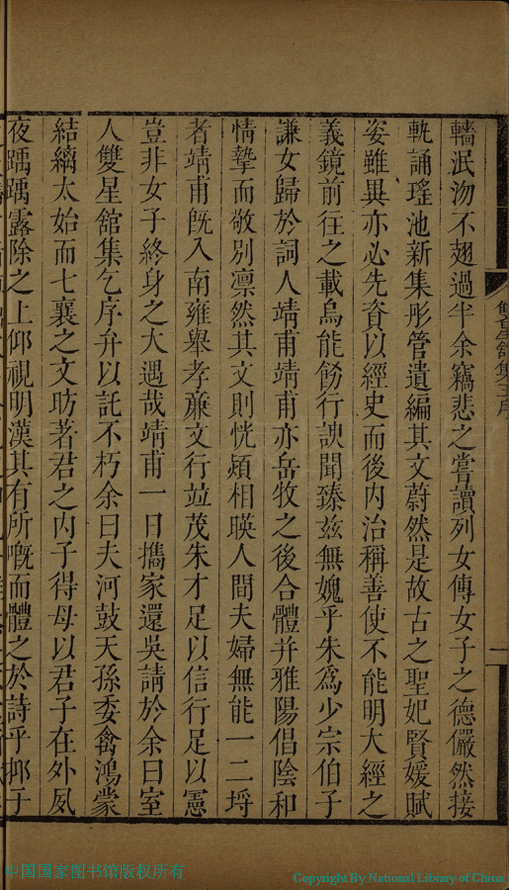 轖泯沕不翅過半余竊悲之嘗讀列女傳女子之德儼然接
軌誦瑤池新集彤管遺編其文蔚然是故古之聖妃賢媛賦
姿雖異亦必先資以經史而後内治稱善使不能明大經之
義鏡前往之載烏能飭行諛聞臻兹無媿乎朱爲少宗伯子
謙女歸於詞人靖甫靖甫亦岳牧之後合體并雅陽倡陰和
情摯而敬别凛然其文則恍熲相暎人間夫婦無能一二埒
者靖甫旣入南雍舉孝亷文行竝茂朱才足以信行足以憲
豈非女子終身之大遇哉靖甫一日攜家還吳請於余曰室
人雙星舘集乞序弁以託不朽余曰夫河鼓天孫委禽鴻蒙
結縭太始而七襄之文昉著君之内子得毋以君子在外夙
夜踽踽露除之上仰視明漢其有所嘅而體之於詩乎抑于
雙星舘集序
一
中国国家图书馆版权所有
Copyright By National Library of China